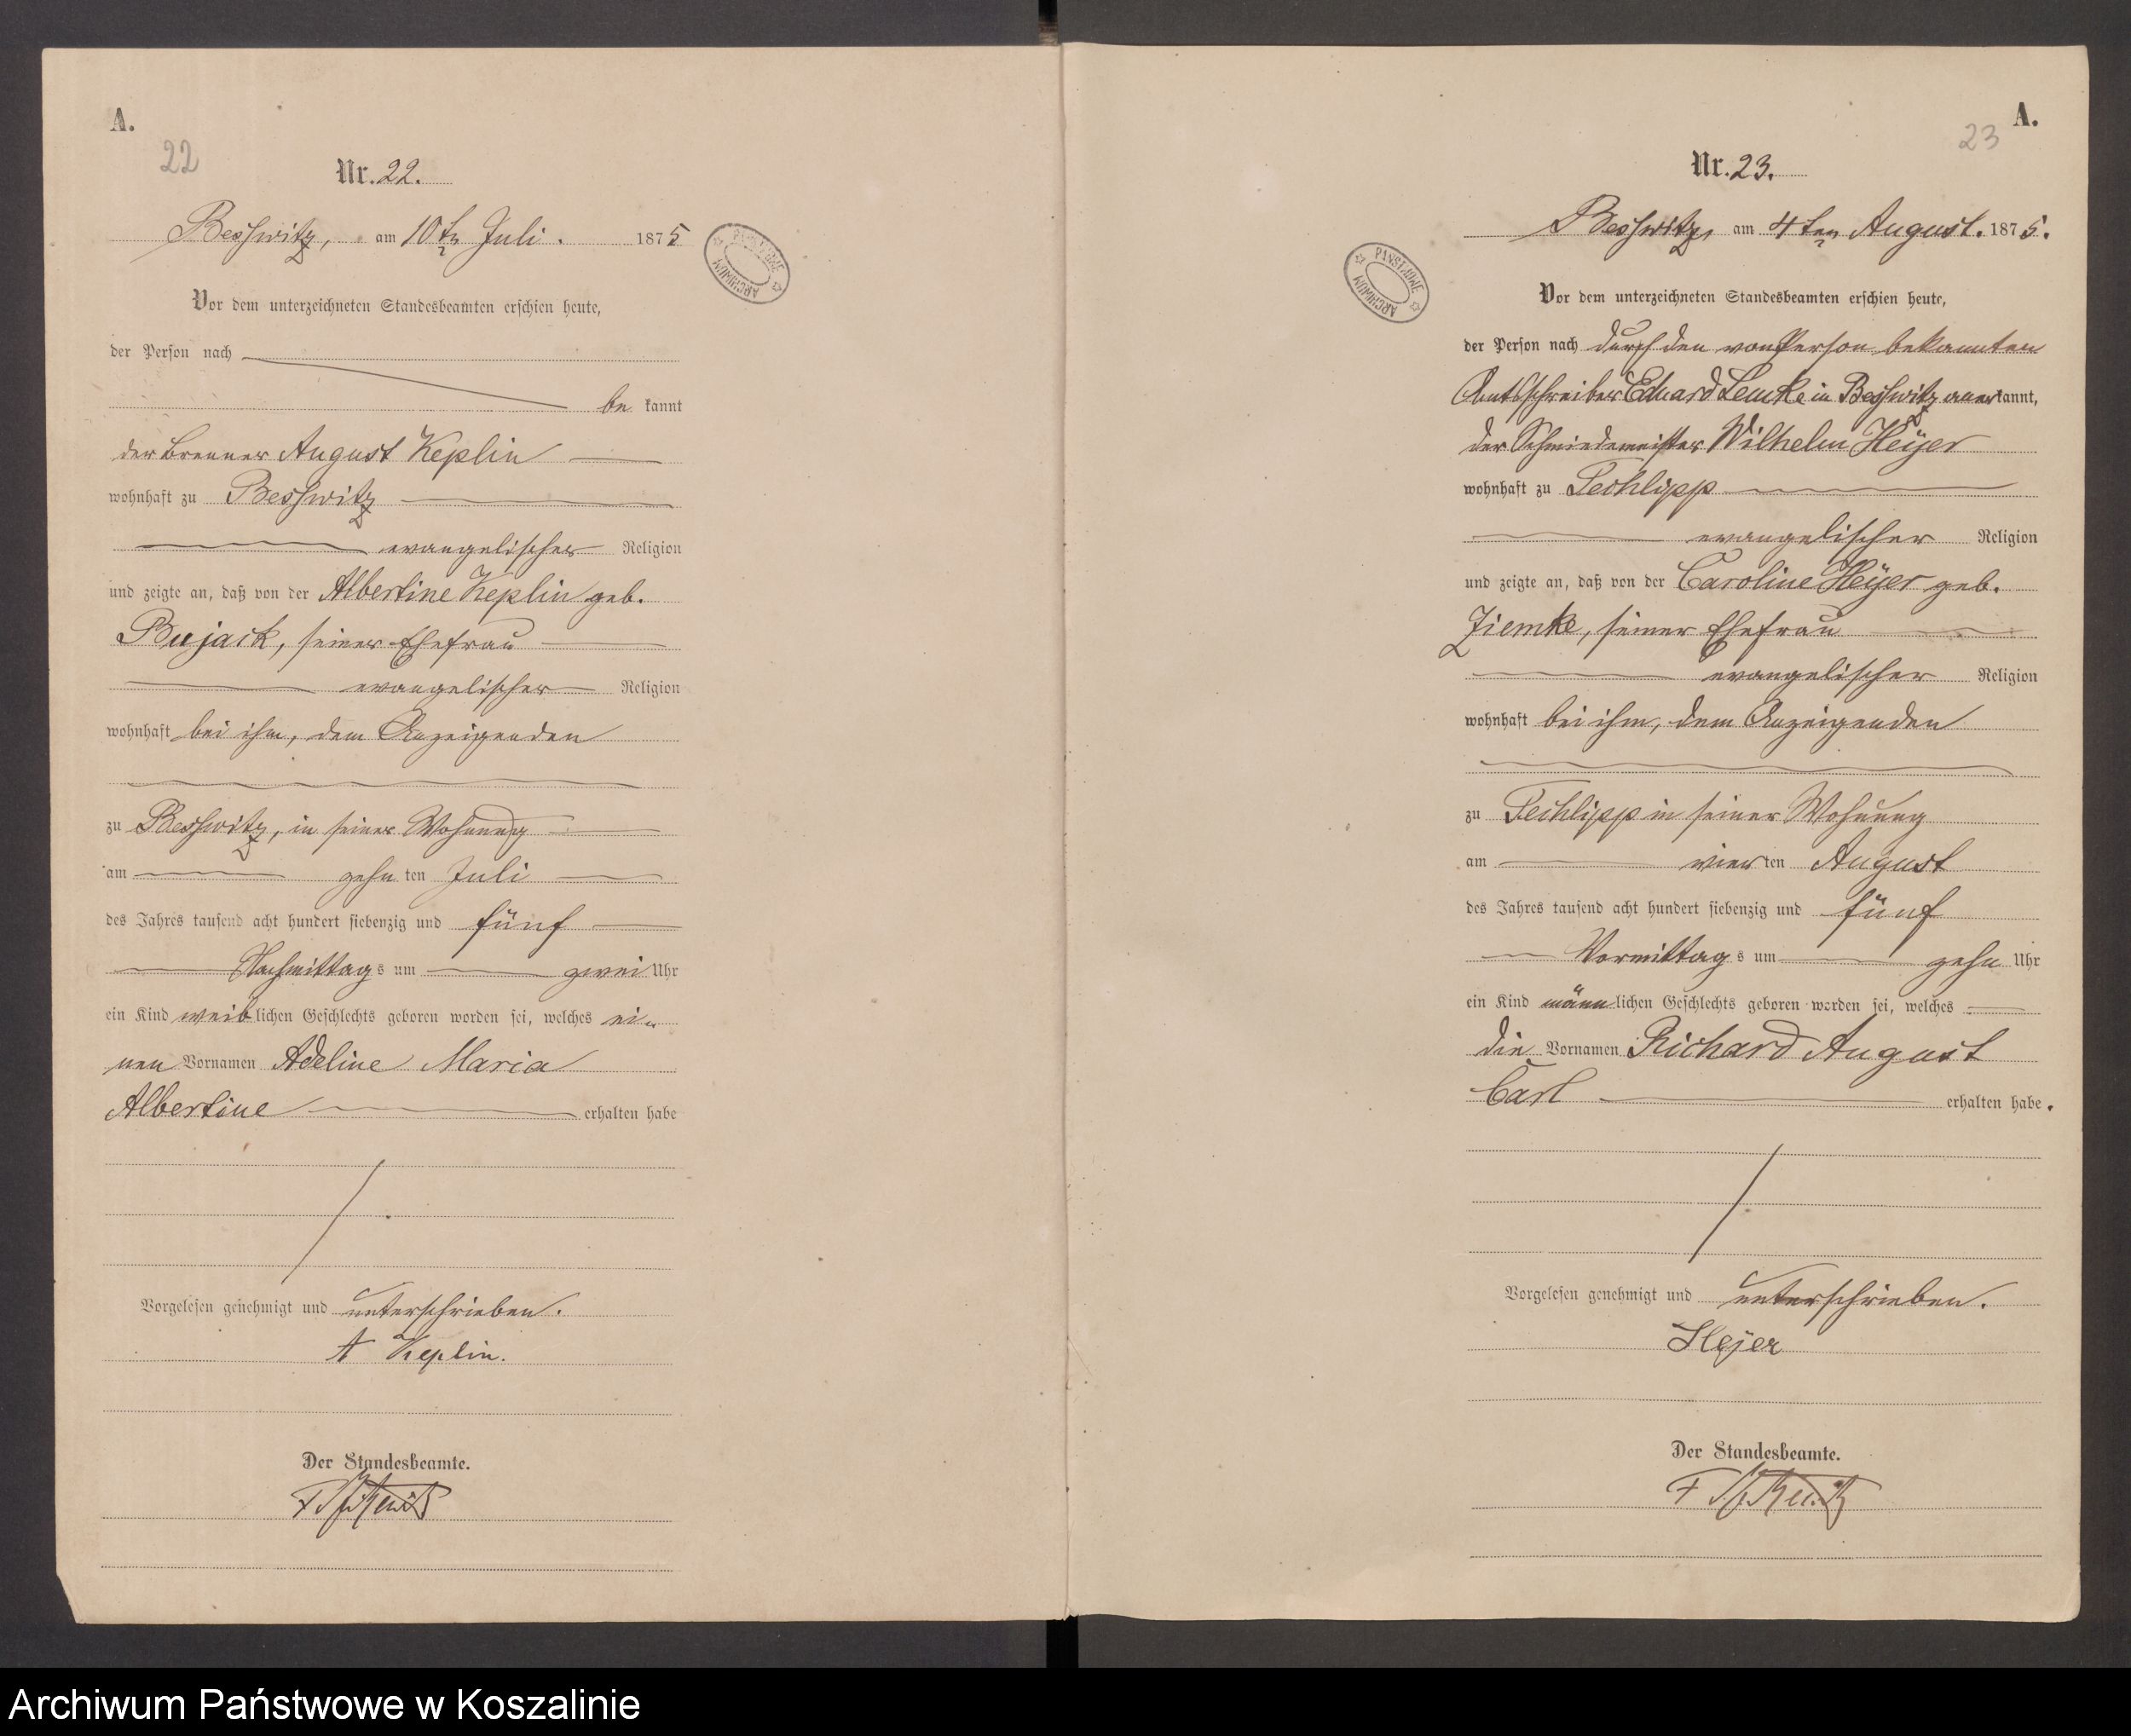 A.
22
Nr. 22.
Besswitz, am 10tn Juli. 1875
ARCHIWUM PAŃSTWOWE
Vor dem unterzeichneten Standesbeamten erschien heute,
der Person nach
be kannt
der Brenner August Keplin
wohnhaft zu Besswitz
evangelischer Religion
und zeigte an, daß von der Albertine Keplin geb.
Bujack, seiner Ehefrau
evangelischer Religion
wohnhaft bei ihm, dem Anzeigenden
zu Besswitz, in seiner Wohnung
am zehn ten Juli
des Jahres tausend acht hundert siebenzig und fünf
Nachmittag s um zwei Uhr
ein Kind weib lichen Geschlechts geboren worden sei, welches ei-
nen Vornamen Adeline Maria
Albertine erhalten habe
Vorgelesen genehmigt und unterschrieben.
A Keplin.
Der Standesbeamte.
A.
23
Nr. 23.
Besswitz, am 4ten August. 1875.
ARCHIWUM PAŃSTWOWE
Vor dem unterzeichneten Standesbeamten erschien heute,
der Person nach durch den von Person bekannten
Amtsschreiber Eduard Lemke in Besswitz aner kannt,
der Schmiedemeister Wilhelm Heÿer
wohnhaft zu Techlipp
evangelischer Religion
und zeigte an, daß von der Caroline Heÿer geb.
Ziemke, seiner Ehefrau
evangelischer Religion
wohnhaft bei ihm, dem Anzeigenden
zu Techlipp in seiner Wohnung
am vier ten August
des Jahres tausend acht hundert siebenzig und fünf
Vormittag s um zehn Uhr
ein Kind männ lichen Geschlechts geboren worden sei, welches
die Vornamen Richard August
Carl erhalten habe.
Vorgelesen genehmigt und unterschrieben.
Heÿer
Der Standesbeamte.
Archiwum Państwowe w Koszalinie